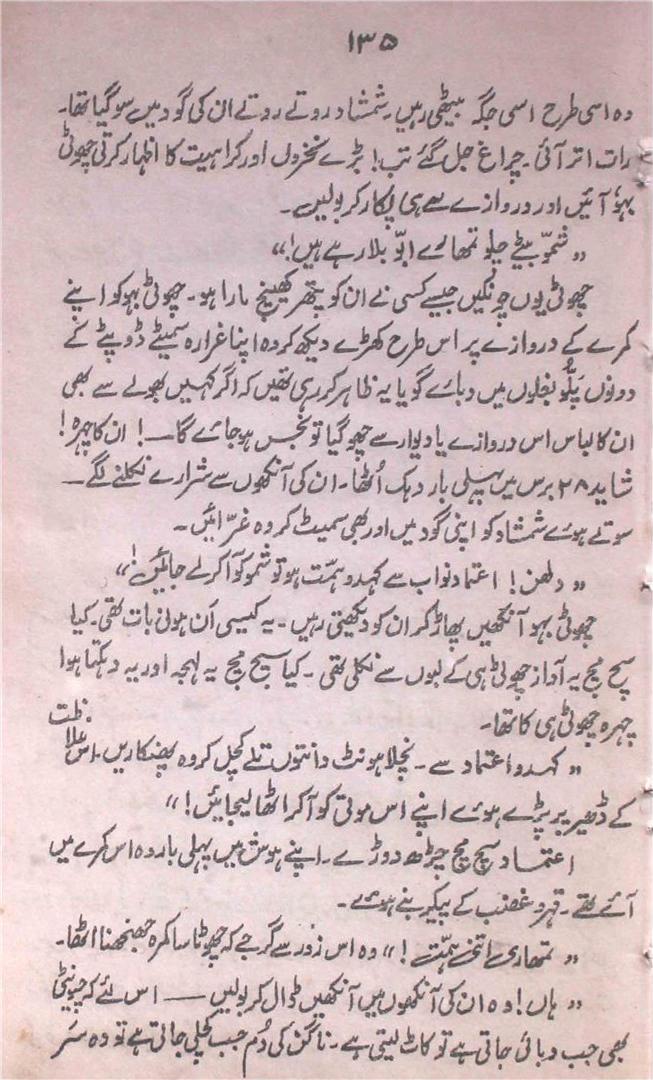 ۱۳۵
وہ اسی طرح اسی جگہ بیٹھی رہیں۔ شمشاد روتے روتے ان کی گود میں سو گیا تھا۔
رات اتر آئی۔ چراغ جل گئے تب! بڑے نخروں اور کراہیت کا اظہار کرتی چھوٹی
بہو آئیں اور دروازے سے ہی پکار کر بولیں۔
”شمّو بیٹے چلو تمھارے ابّو بلا رہے ہیں!“
چھوٹی یوں چونکیں جیسے کسی نے ان کو پتھر کھینچ مارا ہو۔ چھوٹی بہو کو اپنے
کمرے کے دروازے پر اس طرح کھڑے دیکھ کر وہ اپنا غرارہ سمیٹے ڈوپٹے کے
دونوں پلّو بغلوں میں دبائے گویا یہ ظاہر کر رہی تھیں کہ اگر کہیں بھولے سے بھی
ان کا لباس اس دروازے یا دیوار سے چھو گیا تو نجس ہو جائے گا—! ان کا چہرہ!
شاید ۲۸ برس میں پہلی بار دہک اُٹھا۔ ان کی آنکھوں سے شرارے نکلنے لگے—
سوتے ہوئے شمشاد کو اپنی گود میں اور بھی سمیٹ کر وہ غرّائیں۔
”دلھن! اعتماد نواب سے کہدو ہمّت ہو تو شمو کو آ کر لے جائیں!“
چھوٹی بہو آنکھیں پھاڑ کر ان کو دیکھتی رہیں۔ یہ کیسی اَن ہونی بات تھی۔ کیا
سچ مچ یہ آواز چھوٹی ہی کے لبوں سے نکلی تھی۔ کیا سچ مچ یہ لہجہ اور یہ دہکتا ہوا
چہرہ چھوٹی ہی کا تھا۔
”کہدو اعتماد سے۔ نچلا ہونٹ دانتوں تلے کچل کر وہ پھنکاریں۔ اس غلاظت
کے ڈھیر پر پڑے ہوئے اپنے اس موتی کو آ کر اٹھا لیجائیں!“
اعتماد سچ مچ چڑھ دوڑے۔ اپنے ہوش میں پہلی بار وہ اس کمرے میں
آئے تھے۔ قہر و غضب کے پیکر بنے ہوئے۔
”تمھاری اتنی ہمّت!“ وہ اس زور سے گرجے کہ چھوٹا سا کمرہ جھنجھنا اٹھا۔
”ہاں! وہ ان کی آنکھوں میں آنکھیں ڈال کر بولیں — اس لئے کہ چیونٹی
بھی جب دبائی جاتی ہے تو کاٹ لیتی ہے۔ ناگن کی دُم جب کچلی جاتی ہے تو وہ سَر